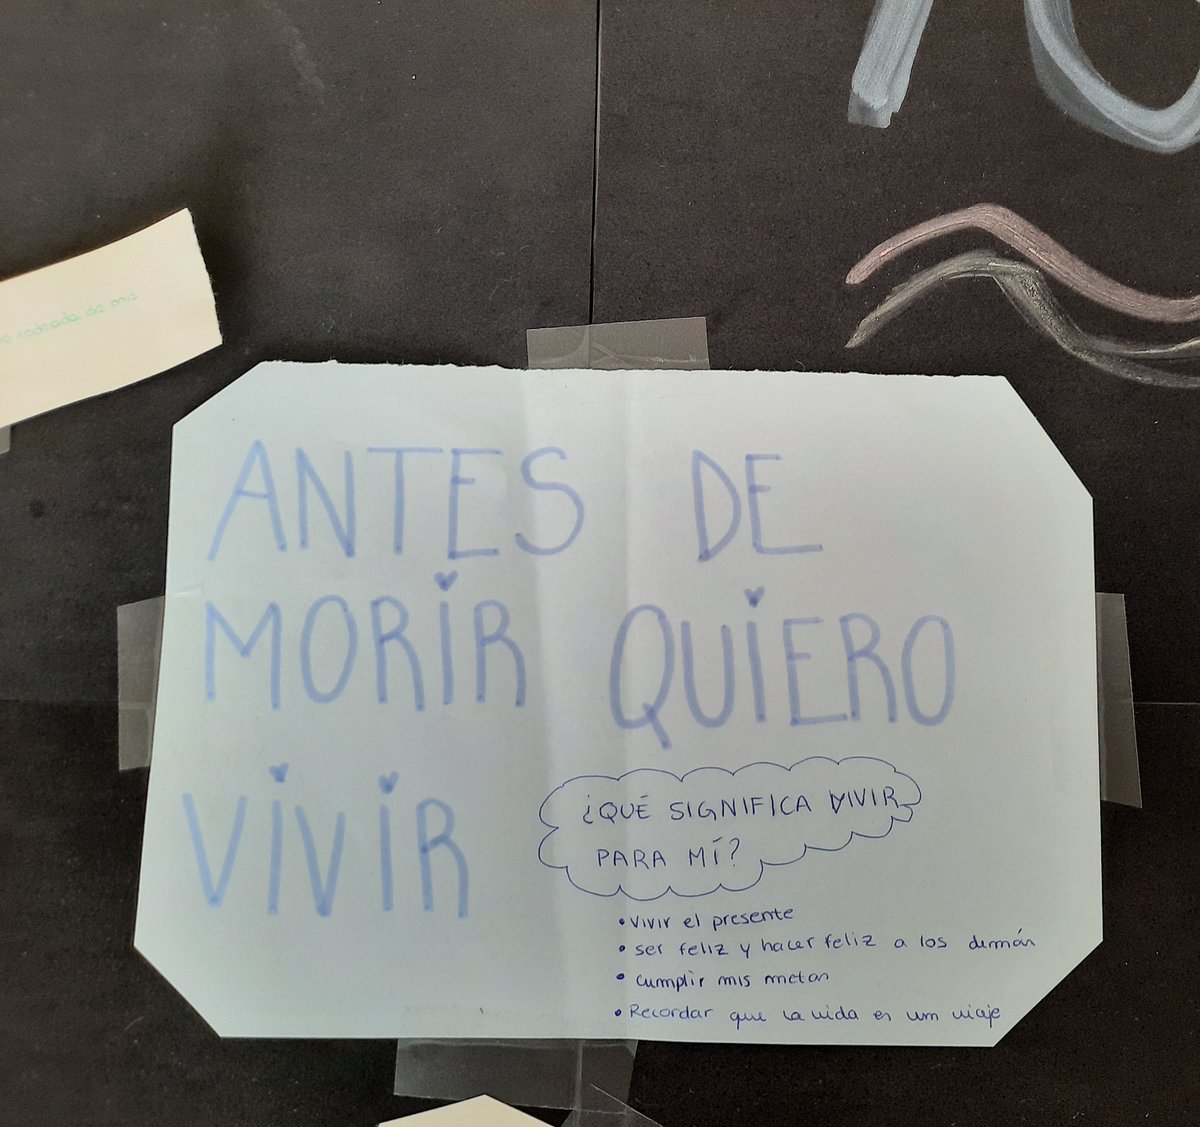 rodeada de mis
ANTES DE
MORIR QUIERO
VIVIR
¿QUÉ SIGNIFICA VIVIR
PARA MÍ?
• Vivir el presente
• ser feliz y hacer feliz a los demás
• cumplir mis metas
• Recordar que la vida es un viaje